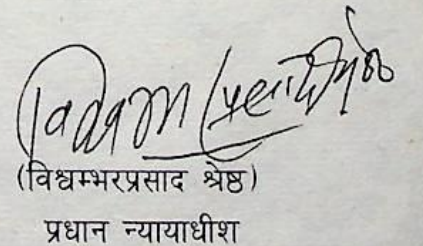 (विश्वम्भरप्रसाद श्रेष्ठ)
प्रधान न्यायाधीश